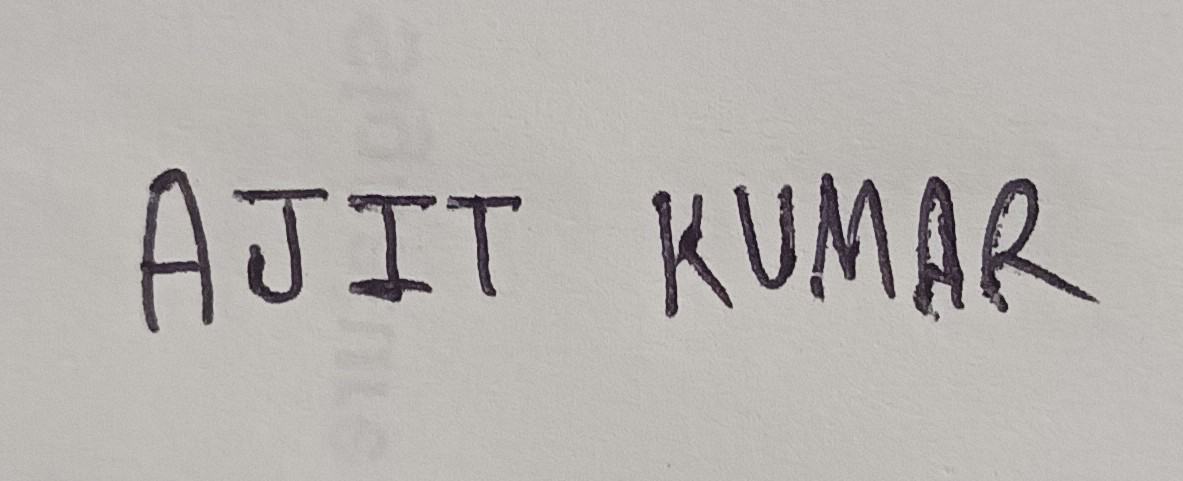 AJIT KUMAR